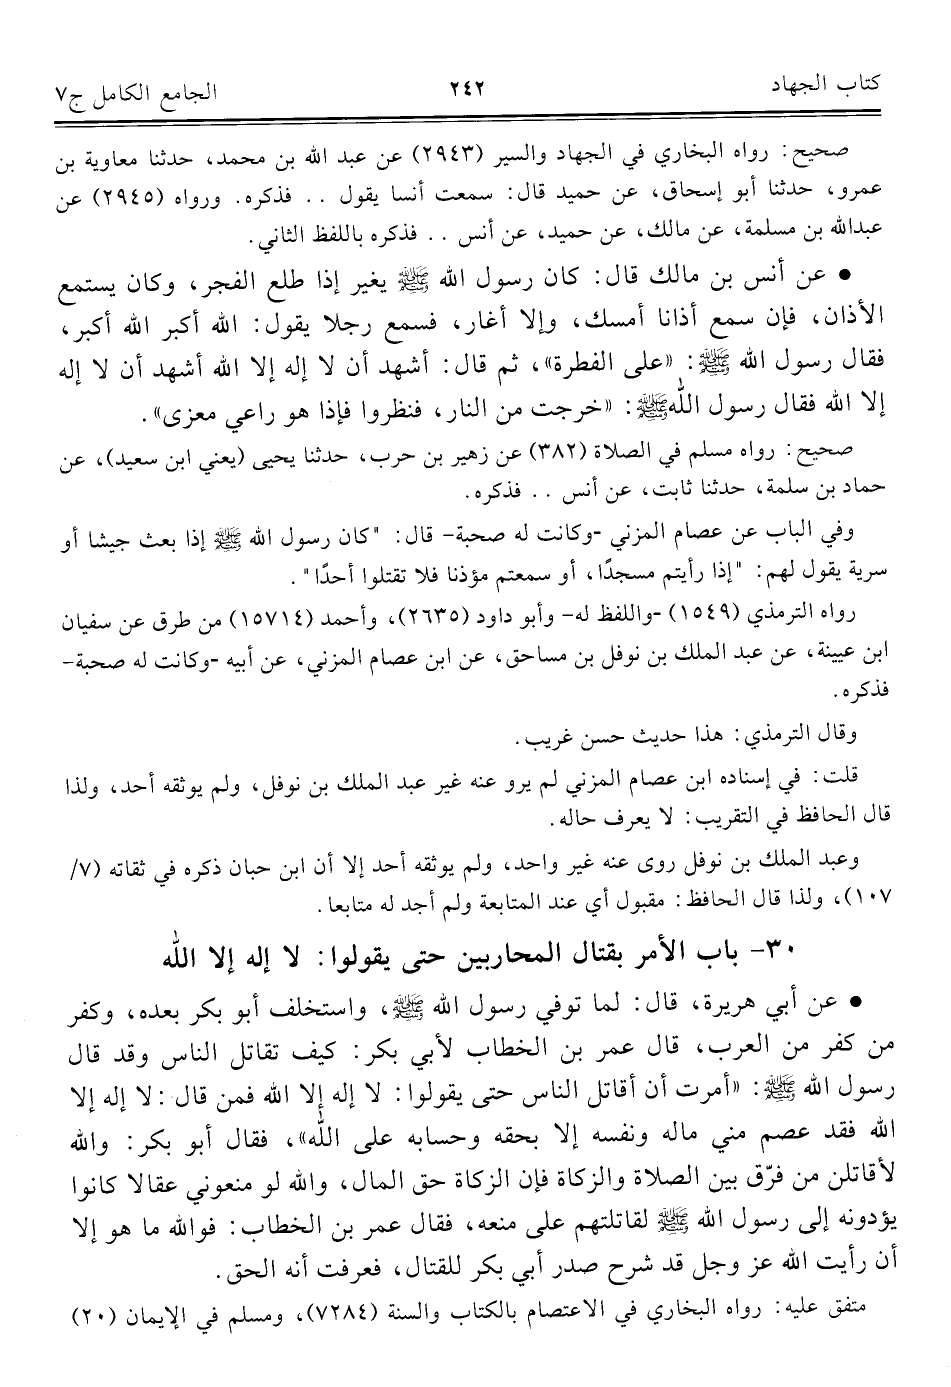 كتاب الجهاد ٢٤٢ الجامع الكامل ج٧
صحيح: رواه البخاري في الجهاد والسير (٢٩٤٣) عن عبد الله بن محمد، حدثنا معاوية بن
عمرو، حدثنا أبو إسحاق، عن حميد قال: سمعت أنسا يقول .. فذكره. ورواه (٢٩٤٥) عن
عبدالله بن مسلمة، عن مالك، عن حميد، عن أنس .. فذكره باللفظ الثاني.
• عن أنس بن مالك قال: كان رسول الله ﷺ يغير إذا طلع الفجر، وكان يستمع
الأذان، فإن سمع أذانا أمسك، وإلا أغار، فسمع رجلا يقول: الله أكبر الله أكبر،
فقال رسول الله ﷺ: «على الفطرة»، ثم قال: أشهد أن لا إله إلا الله أشهد أن لا إله
إلا الله فقال رسول اللهﷺ: «خرجت من النار، فنظروا فإذا هو راعي معزى».
صحيح: رواه مسلم في الصلاة (٣٨٢) عن زهير بن حرب، حدثنا يحيى (يعني ابن سعيد)، عن
حماد بن سلمة، حدثنا ثابت، عن أنس .. فذكره.
وفي الباب عن عصام المزني -وكانت له صحبة- قال: "كان رسول الله ﷺ إذا بعث جيشا أو
سرية يقول لهم: "إذا رأيتم مسجدًا، أو سمعتم مؤذنا فلا تقتلوا أحدًا".
رواه الترمذي (١٥٤٩) -واللفظ له- وأبو داود (٢٦٣٥)، وأحمد (١٥٧١٤) من طرق عن سفيان
ابن عيينة، عن عبد الملك بن نوفل بن مساحق، عن ابن عصام المزني، عن أبيه -وكانت له صحبة-
فذكره.
وقال الترمذي: هذا حديث حسن غريب.
قلت: في إسناده ابن عصام المزني لم يرو عنه غير عبد الملك بن نوفل، ولم يوثقه أحد، ولذا
قال الحافظ في التقريب: لا يعرف حاله.
وعبد الملك بن نوفل روى عنه غير واحد، ولم يوثقه أحد إلا أن ابن حبان ذكره في ثقاته (٧/
١٠٧)، ولذا قال الحافظ: مقبول أي عند المتابعة ولم أجد له متابعا.
٣٠- باب الأمر بقتال المحاربين حتى يقولوا: لا إله إلا الله
• عن أبي هريرة، قال: لما توفي رسول الله ﷺ، واستخلف أبو بكر بعده، وكفر
من كفر من العرب، قال عمر بن الخطاب لأبي بكر: كيف تقاتل الناس وقد قال
رسول الله ﷺ: «أمرت أن أقاتل الناس حتى يقولوا: لا إله إلا الله فمن قال :لا إله إلا
الله فقد عصم مني ماله ونفسه إلا بحقه وحسابه على الله»، فقال أبو بكر: والله
لأقاتلن من فرّق بين الصلاة والزكاة فإن الزكاة حق المال، والله لو منعوني عقالا كانوا
يؤدونه إلى رسول الله ﷺ لقاتلتهم على منعه، فقال عمر بن الخطاب: فوالله ما هو إلا
أن رأيت الله عز وجل قد شرح صدر أبي بكر للقتال، فعرفت أنه الحق.
متفق عليه: رواه البخاري في الاعتصام بالكتاب والسنة (٧٢٨٤)، ومسلم في الإيمان (٢٠)